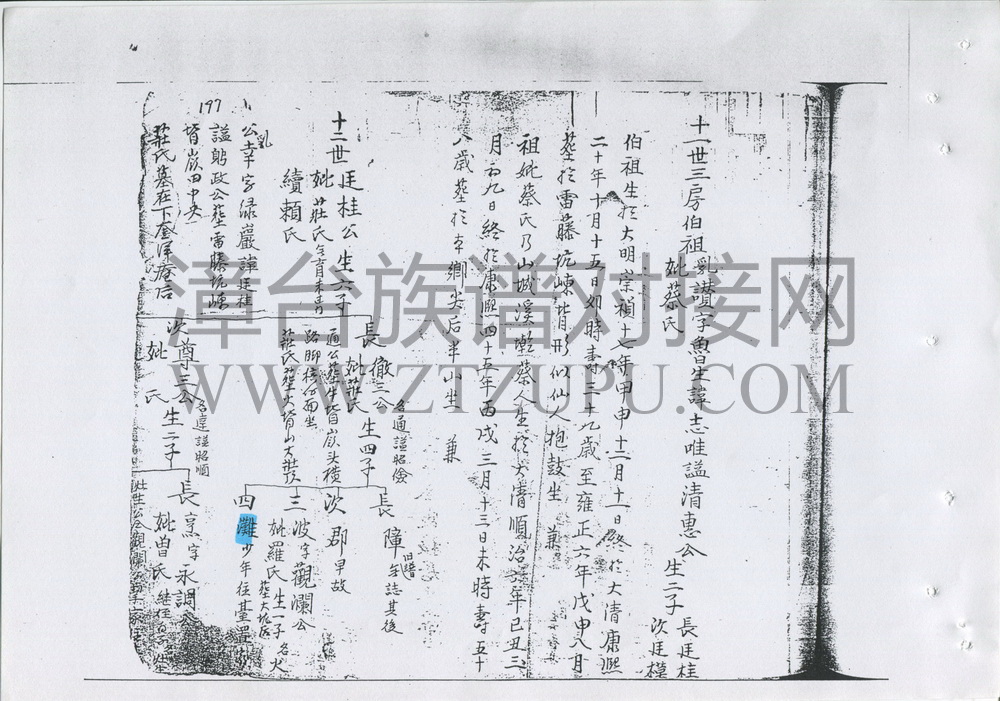 十一世三房伯祖乳讚字魯生諱志唯謚清惠公生二子長廷桂
次廷模
妣蔡氏
伯祖生於大明崇禎十七年甲申十二月十一日終於大清康熙
二十年十月十五日如時壽三十九歲至雍正六年戊申八月
塟於雷藤坑崠背形似仙人抱鼓坐 兼
祖妣蔡氏乃山城溪墘蔡人生於大清順治六年己丑三
月初九日終於康熙四十五年丙戌三月十三日未時壽五十
八歲塟於本鄉尖后半山坐 兼
十二世廷桂公生六子
妣莊氏
續賴氏
公乳幸字綠巖諱廷桂
謚躬政公塟雷藤坑崠
背崀田中央
莊氏墓在下奎洋庵后
長徹三公生四子
名通謚昭儉
妣莊氏
通公塟牛背崀頭橫
路腳
莊氏塟
長障
舊譜無誌其後
次郡早故
三波字觀瀾公
妣羅氏生一子名火
四灘少年往臺
次尊三公生二子
名達謚昭順
妣 氏
長烹字永調公
妣曾氏
197
漳台族谱对接网
WWW.ZTZUPU.COM